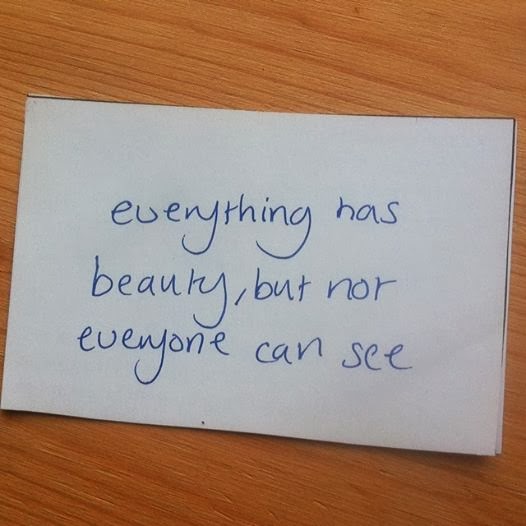 everything has
beauty, but not
everyone can see